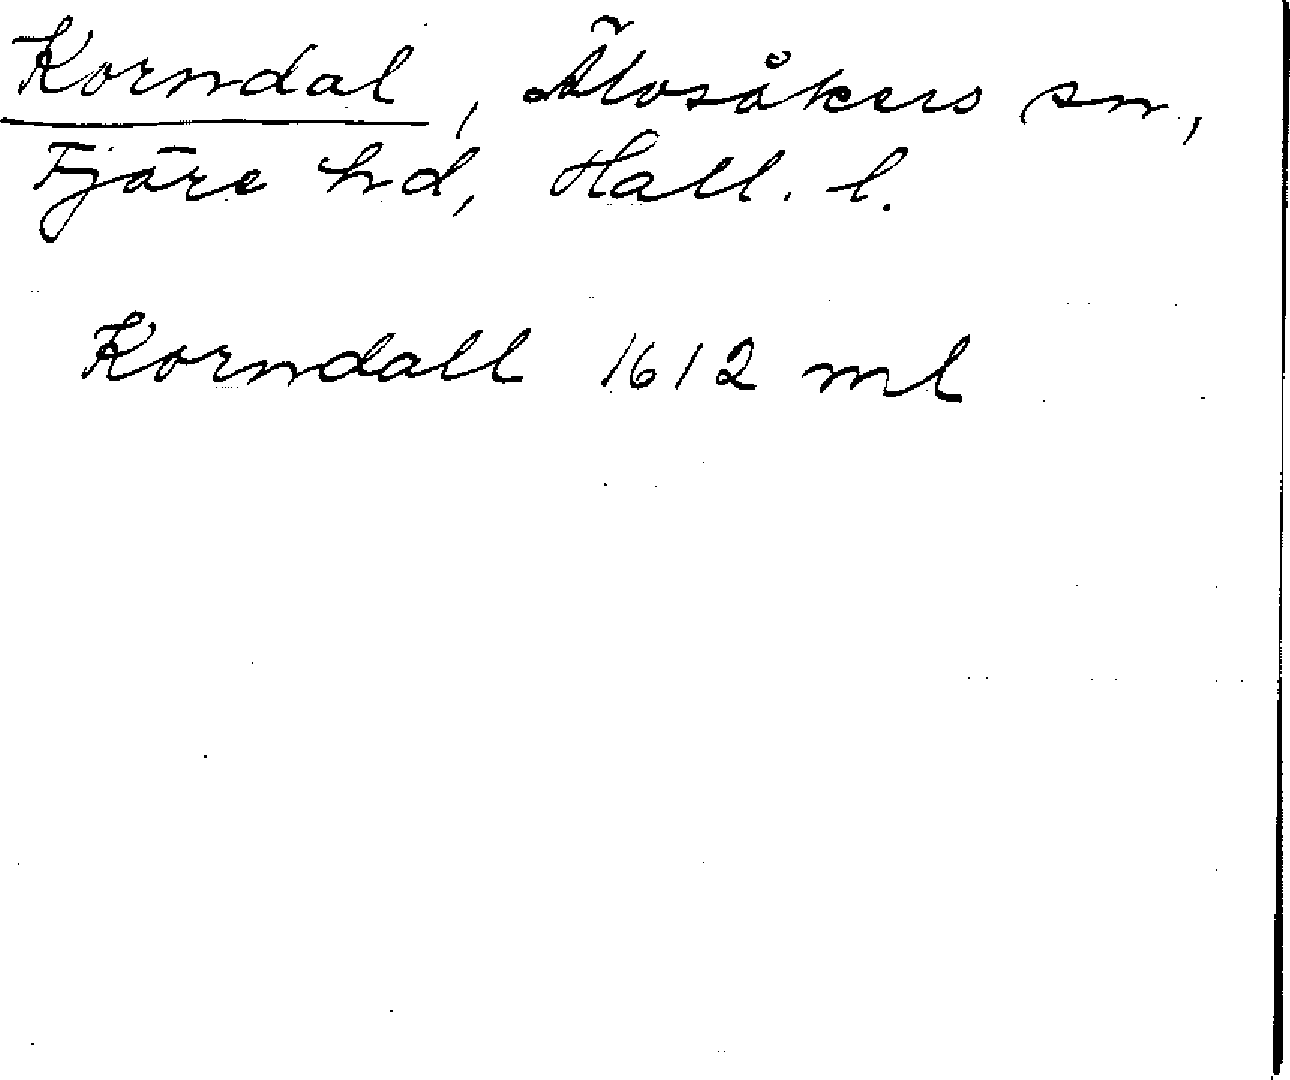 Korndal, Älvsåkers sn,
Fjäre hd, Hall. l.
Korndall 1612 ml